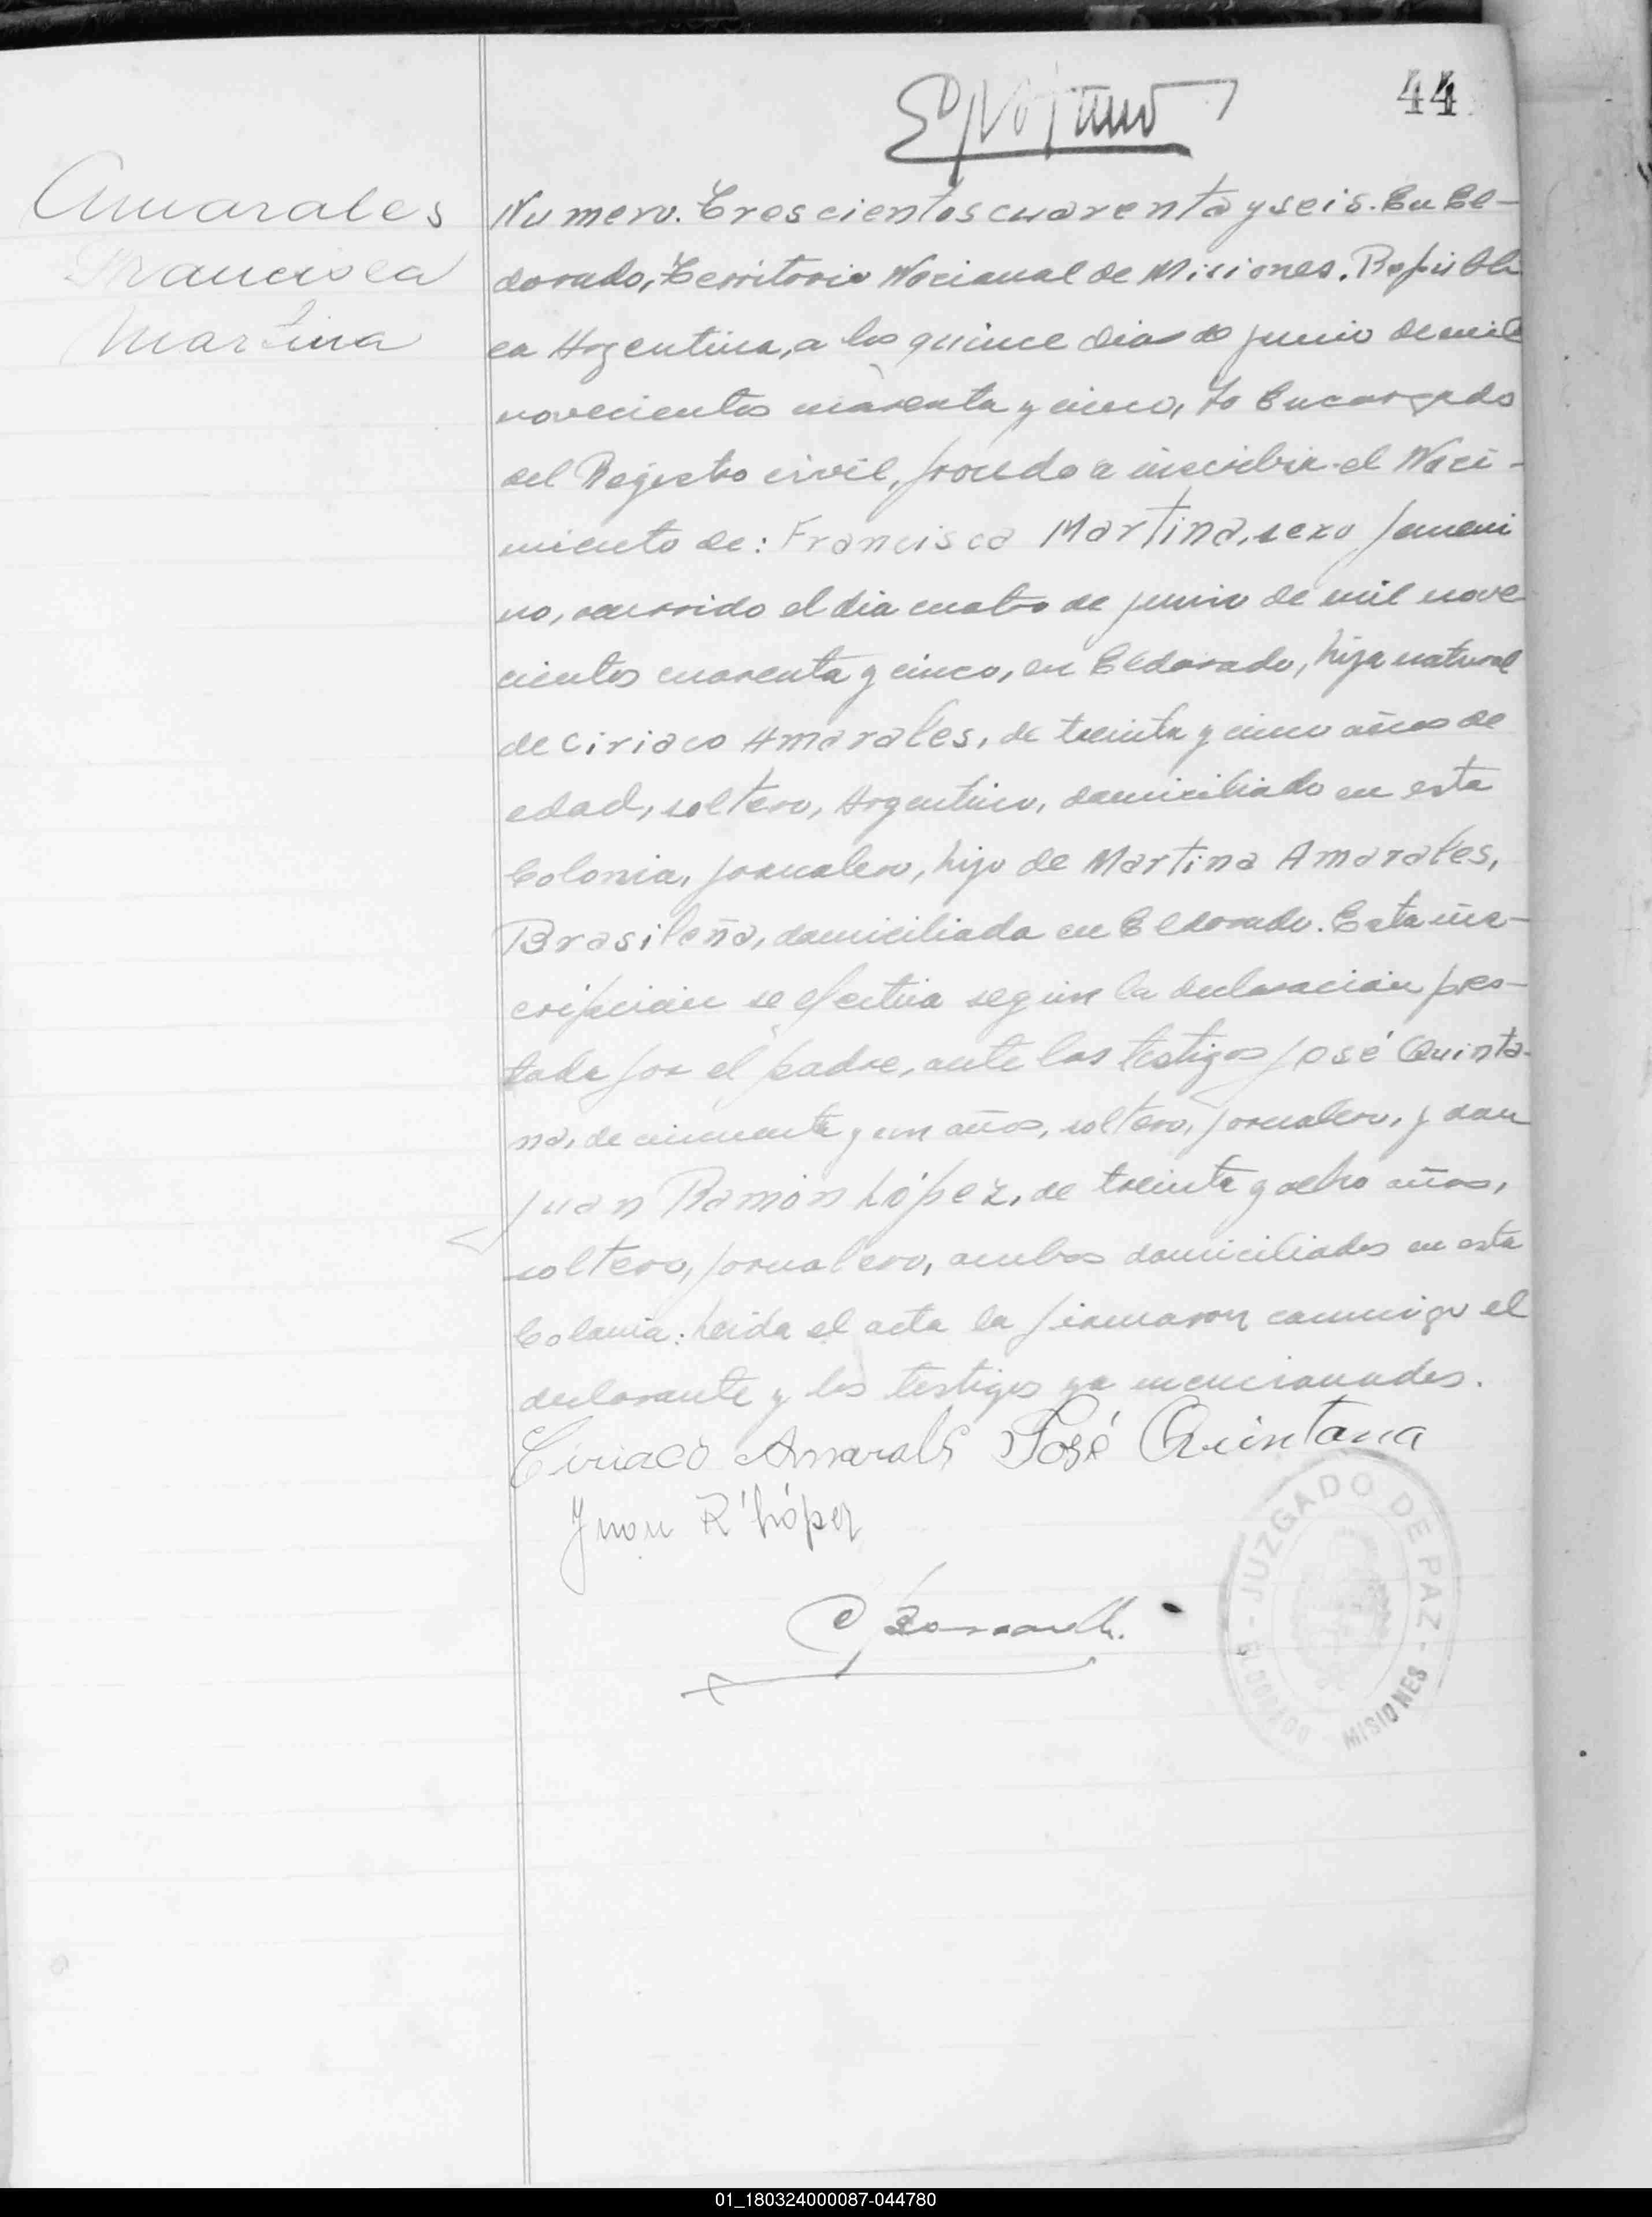 44
Amarales
Francisca
Martina
Numero. Trescientos cuarenta y seis. En El-
dorado, Territorio Nacional de Misiones. Repúbli
ca Argentina, a los quince dias de junio de mil
novecientos cuarenta y cinco, Yo Encargado
del Registro civil, procedo a inscribir el Naci-
miento de: Francisca Martina, sexo femeni
no, ocurrido el dia cuatro de junio de mil nove
cientos cuarenta y cinco, en Eldorado, hija natural
de Ciriaco Amarales, de treinta y cinco años de
edad, soltero, Argentino, domiciliado en esta
Colonia, jornalero, hijo de Martina Amarales,
Brasileña, domiciliada en Eldorado. Esta ins-
cripción se efectúa según la declaración pres-
tada por el padre, ante los testigos José Quinta-
na, de cincuenta y un años, soltero, jornalero, y don
Juan Ramón López, de treinta y ocho años,
soltero, jornalero, ambos domiciliados en esta
Colonia: Leida el acta la firmaron conmigo el
declarante y los testigos ya mencionados.
Ciriaco Amarales José Quintana
Juan R. López
JUZGADO DE PAZ - MISIONES
ELDORADO
01_180324000087-044780